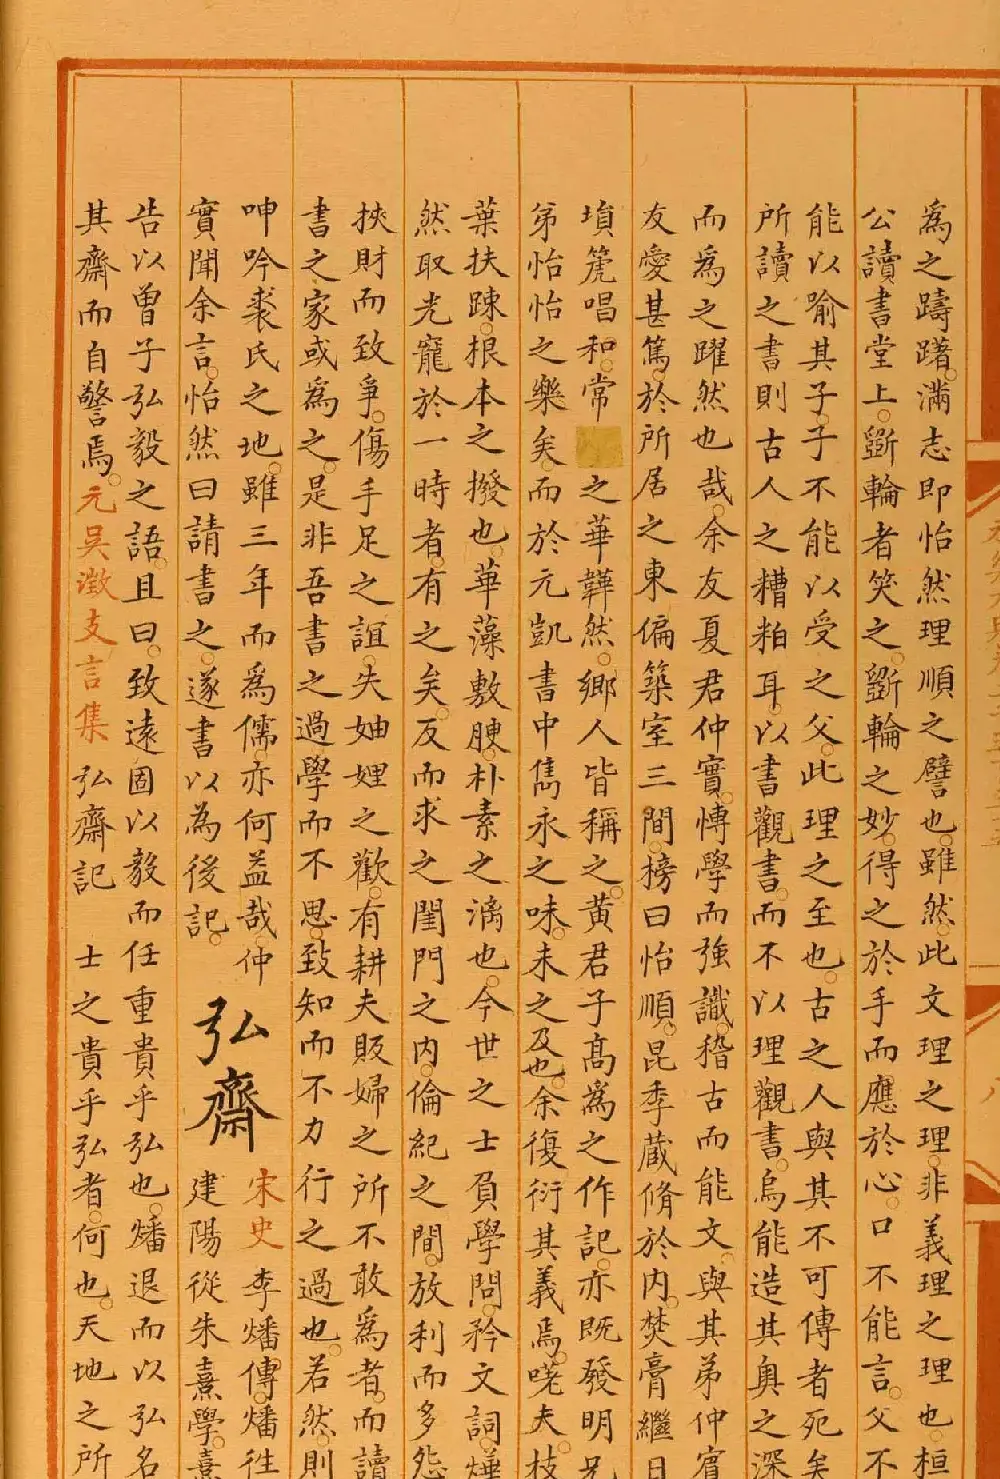 為之躊躇滿志即怡然理順之譬也雖然此文理之理非義理之理也桓
公讀書堂上斵輪者笑之斵輪之妙得之於手而應於心口不能言父不
能以喻其子子不能以受之父此理之至也古之人與其不可傳者死矣
所讀之書則古人之糟粕耳以書觀書而不以理觀書烏能造其奥之深
而為之躍然也哉余友夏君仲實博學而強識稽古而能文與其弟仲賓
友愛甚篤於所居之東偏築室三間榜曰怡順昆季蔵脩於内焚膏繼日
塤箎唱和常之華韡然鄉人皆稱之黄君子髙為之作記亦既發明兄
弟怡怡之樂矣而於元凱書中雋永之味未之及也余復衍其義焉嗟夫枝
葉扶踈根本之撥也華藻敷腴朴素之漓也今世之士負學問矜文詞燁
然取光寵於一時者有之矣反而求之閨門之内倫紀之間放利而多怨
挾財而致爭傷手足之誼失妯娌之歡有耕夫販婦之所不敢為者而讀
書之家或為之是非吾書之過學而不思致知而不力行之過也若然則
呻吟裘氏之地雖三年而為儒亦何益哉仲
實聞余言怡然曰請書之遂書以為後記
弘齋
宋史 李燔傳燔徃
建陽從朱熹學熹
告以曾子弘毅之語且曰致遠固以毅而任重貴乎弘也燔退而以弘名
其齋而自警焉元吴澂支言集 弘齋記 士之貴乎弘者何也天地之所